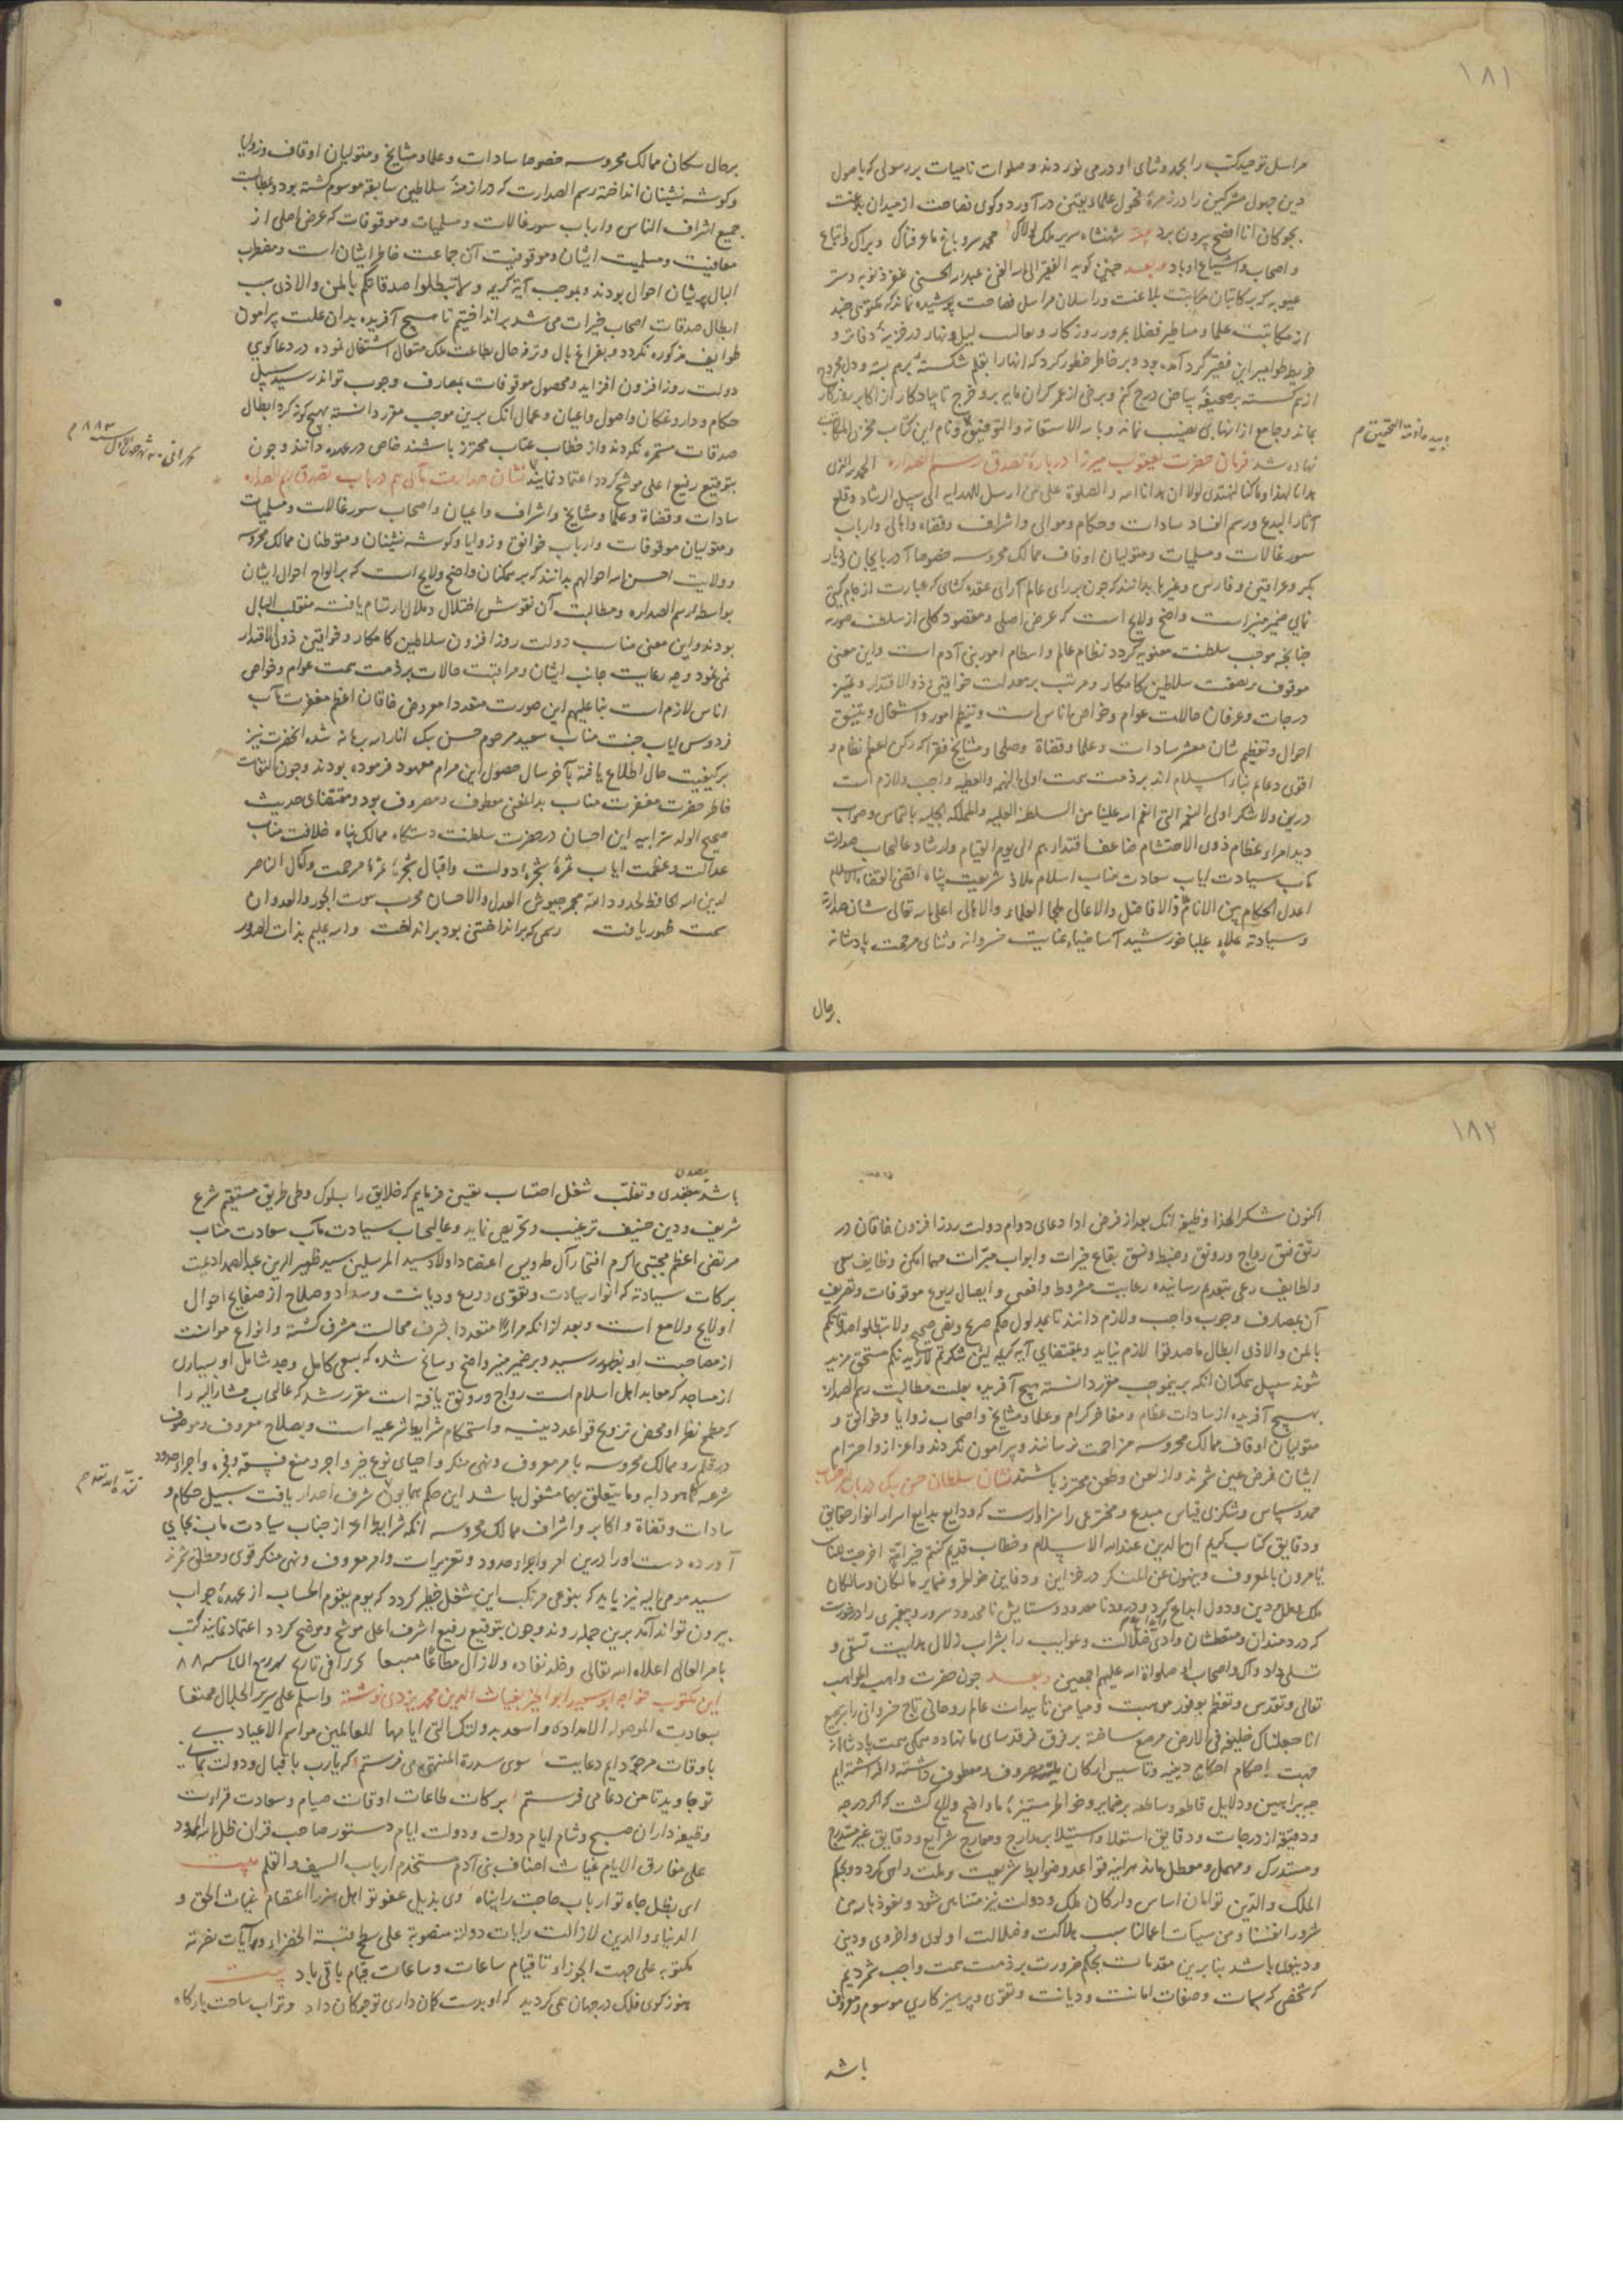 ١٨١
مراسل توحید کتب را بحمد و ثنای او در می نوردند و صلوات نامیات بر رسولی که باصول
دین جهول مشرکین را در زمرهٔ فحول علماء یقین در آورد و کوی فصاحت از میدان بلاغت
بچوکان انا افصح بیرون برد شهنشاه سریر ملک لولاک محمد سرو باغ ما عرفناک و بر آل و اتباع
و اصحاب و اشیاع او باد و بعد چنین کوید الفقیر الی الله الغنی عبدالله الحسنی غفر ذنوبه و ستر
عیوبه که بر کاتبان مکاتبت بلاغت و راسلان مراسل فصاحت پوشیده نماند که مکتوبی چند
از مکاتبت علما و مساطیر فضلا بمرور روزکار و لیل و نهار در خزینهٔ دفاتر و
خریطه طوامیر این فقیر کرد آمده بود و بر خاطر خطور کرد که انها را بقلم شکسته بر هم بسته و دل مجروح
از هم کسسته بر صحیفهٔ بیاض درج کنم و برخی از عمر کران مایه برو خرج تا یادکار از اکابر روزکار
بماند و جامع از انها بی نصیب نماند و بالله الاستعانه و التوفیق و نام این کتاب
نهاده شد فرمان حضرت یعقوب میرزا در بارهٔ تصدق رسم الصداره الحمد لله الذی
هدانا لهذا و ما کنا لنهتدی لولا ان هدانا الله و الصلوة علی من ارسل للهدایه الی سبیل الرشاد و قلع
آثار البدع و رسم الفساد سادات و حکام و موالی و اشراف و قضاه و اهالی و ارباب
سورغالات و مسلمیات و متولیان اوقاف ممالک محروسه خصوصا آذربایجان و دیار
بکر و عراقین و فارس و غیرها بدانند که چون بر رای عالم آرای عقده کشای که عبارت از جام کیتی
نمای ضمیر منیر است واضح و لایح است که غرض اصلی و مقصود کلی از سلطنت صوریه
چنانچه موجب سلطنت معنویه کردد نظام عالم و انتظام امور بنی آدم است و این معنی
موقوف بر نصفت سلاطین کامکار و مرتب بر معدلت خواقین ذو الاقتدار و تمییز
درجات و عرفان حالات عوام و خواص ناس است و تنظیم امور و اشغال و تنسیق
احوال و تعظیم شان معشر سادات و علما و قضاة و صلحا و مشایخ فقرا که رکن اعظم نظام و
اقوی دعایم بناء اسلام اند بر ذمت همت اولی النهیه و العطیه واجب و لازم است
درین ولا شکر اولی النعم التی انعم الله علینا من السلطنة العلیه و المملکة الجلیه بالتماس و صواب
دید امراء عظام ذوی الاحتشام ضاعف اقتدارهم الی یوم القیام و ارشاد عالیجاب صدارت
مآب سیادت ایاب سعادت مناب اسلام ملاذ شریعت پناه اقضی القضاة الاسلام
اعدل الحکام بین الانام ذا الافاضل و الاعالی ملجا العلماء و الاهالی اعلی الله تعالی شان صدارته
و سیادته علاء علیا خورشید آسا ضیاء عنایت خسروانه و ثنای مرحمت پادشاهانه
بر حال
بر حال سکان ممالک محروسه خصوصا سادات و علما و مشایخ و متولیان اوقاف و زوایا
و کوشه نشینان انداخته رسم الصدارت که در ازمنهٔ سلاطین سابقه موسوم کشته بود و بمطالبت
جمیع اشراف الناس و ارباب سورغالات و مسلمیات و موقوفات که غرض اصلی از
معافیت و مسلمیت ایشان و موقوفیت آن جماعت خاطر ایشان است و مضطرب
البال پریشان احوال بودند و بموجب آیهٔ کریمه و لا تبطلوا صدقاتکم بالمن و الاذی سبب
ابطال صدقات اصحاب خیرات می شد بر انداختیم تا هیچ آفریده بدان علت پرامون
طوایف مذکوره نکردد و بفراغ بال و ترفه حال بطاعت ملک متعال اشتغال نموده در دعاکوی
دولت روزافزون افزاید و محصول موقوفات بمصارف وجوب تواند رسید سبیل
حکام و داروغکان و اصول و اعیان و عمال انک برین موجب مقرر دانسته بهیچ کونه کرد ابطال
صدقات مستمره نکردند و از خطاب عتاب محترز باشند خاص در عهده دانند و چون
بتوقیع رفیع اعلی موشح کردد اعتماد نمایند نشان صدارت مآلی هم در باب تصدق رسم الصداره
سادات و قضاة و علما و مشایخ و اشراف و اعیان و اصحاب سورغالات و مسلمیات
و متولیان موقوفات و ارباب خوانق و زوایا و کوشه نشینان و متوطنان ممالک محروسه
و ولایت احسن الله احوالهم بدانند که بر همکنان واضح و لایح است که بر الواح احوال ایشان
بواسطه رسم الصداره و مطالبت آن نقوش اختلال و ملال ارتسام یافته منقلب البال
بودند و این معنی مناسب دولت روزافزون سلاطین کامکار و خواقین ذوی الاقتدار
نمی نمود و چه رعایت جانب ایشان و مراقبت حالات بر ذمت همت عوام و خواص
اناس لازم است بنا علیهم این صورت متعددا معروض خاقان اعظم مغفرت مآب
فردوس ایاب جنت مناب سعید مرحوم حسن بیک انار الله برهانه شده انحضرت نیز
بر کیفیت حال اطلاع یافته بآخر سال حصول این مرام معهود فرموده بودند و چون التفات
خاطر حضرت مغفرت مناب بدانمعنی معطوف و مصروف بود و مقتضای حدیث
صحیح الولد سر ابیه این احسان در حضرت سلطنت دستکاه ممالک پناه خلافت مناب
عدالت و عظمت ایاب ثمرهٔ شجرهٔ دولت و اقبال شجرهٔ ثمرهٔ مرحمت و کمال الناصر
لدین الله الحافظ لحدود الله مجر جیوش العدل و الاحسان مخرب بیوت الجور و العدوان
سمت ظهور یافت رسمی که بر انداختنی بود بر انداخت و الله علیم بذات الصدور
١٨٢
اکنون شکرا لهذا وظیفه انک بعد از فرض ادا دعای دوام دولت روزافزون خاقان در
رتق فتق رواج و رونق و ضبط و نسق بقاع خیرات و ابواب مبرات مهما امکن وظایف سعی
و لطایف رعی بتقدیم رسانیده رعایت مشروط واقفین و ایصال ریوع موقوفات و تعریف
آن بمصارف وجوب واجب و لازم دانند تا بمدلول حکم صریح و نص صحیح و لا تبطلوا صدقاتکم
بالمن و الاذی ابطال ما صدقوا لازم نیاید و بمقتضای آیه کریمه لئن شکرتم لازیدنکم مستحق مزید
شوند سبیل همکنان انکه بر ینموجب مقرر دانسته هیچ آفریده بعلت مطالبت رسم الصداره
بهیچ آفریده از سادات عظام و مفاخر کرام و علما و مشایخ و اصحاب زوایا و خوانق و
متولیان اوقاف ممالک محروسه مزاحمت نرسانند و پیرامون نکردند و اعزاز و احترام
ایشان فرض عین شمرند و از لعن و طعن محترز باشند نشان سلطان حسن بیک در باب احتساب
حمد و سپاس و شکر بی قیاس مبدع و مخترعی را سزاوارست که ودایع بدایع اسرار انوار حقایق
و دقایق کتاب کریم ان الدین عند الله الاسلام و خطاب قدیم کنتم خیر امة اخرجت للناس
تأمرون بالمعروف و ینهون عن المنکر در خزاین و دفاین خواطر و ضمایر مالکان و سالکان
ملک و ملل دین و دول ابداع کرد و درود نامعدود و ستایش نامحدود سرور و پیغمبری را در خورست
که دردمندان و متعطشان وادی ضلالت و غوایت را بشراب زلال هدایت تسقی و
تسلی داد و آل و اصحاب او صلواة الله علیهم اجمعین و بعد چون حضرت واهب المواهب
تعالی و تقدس و تعظم بوفور موهبت و میامن تأییدات عالم روحانی تاج خسروانی را بترصیع
انا جعلناک خلیفة فی الارض مرصع ساخته بر فرق فرقدسای ما نهاد و همکی همت پادشاهانه
جهت احکام احکام دینیه و تاسیس ارکان ملیه مصروف و معطوف داشته و افراشته ایم
چه ببراهین و دلایل قاطعه و ساطعه بر ضمایر و خواطر مستنیرهٔ ما واضح و لایح کشت که اکر درجه
و دقیقه از درجات و دقایق استعلا و استیلا بمدارج و معارج شرایع و دقایق غیر متدرج
و مستدرک و مهمل و معطل ماند هر اینه قواعد و ضوابط شریعت و ملت واهی کردد و بحکم
الملک و الدین توامان اساس و ارکان ملک و دولت نیز متناهی شود و نعوذ بالله من
شرور انفسنا و من سیئات اعمالنا سبب هلاکت و ضلالت اولوی و اخروی و دینی
و دنیوی باشد بنا برین مقدمات بحکم ضرورت بر ذمت همت واجب شمردیم
که شخصی که بسمات و صفات امانت و دیانت و تقوی و پرهیزکاری موسوم و معروف
باشد
باشد بتصدی و تقلب شغل احتساب تعیین فرمایم که خلایق را بسلوک و طی طریق مستقیم شرع
شریف و دین حنیف ترغیب و تحریص نماید و عالیجاب سیادت مآب سعادت مناب
مرتضی اعظم مجتبی اکرم افتخار آل طه و یس اعتضاد اولاد سید المرسلین سید ظهیر الدین عبد الصمد ادیمت
برکات سیادته که انوار سیادت و تقوی و ورع و دیانت و سداد و صلاح از صفایح احوال
او لایح و لامع است و بعد از انکه مرارا متعددا بشرف مجالست مشرف کشته و انواع موانست
از مصاحبت او بظهور رسید و بر ضمیر منیر واضح و سانح شده که بسعی کامل و جد شامل او بسیاری
از مساجد که معابد اهل اسلام است رواج و رونق یافته است مقرر شد که عالیجاب مشار الیه را
که مطمح نظر او محض ترویج قواعد دینیه و استحکام شرایط شرعیه است و بصلاح معروف و موصوف
در قلمرو ممالک محروسه بامر معروف و نهی منکر و احیای نوع خیر و اجر و منع فسقه و فجره و اجراء حدود
شرعیه کما هو دابه و ما یتعلق بهما مشغول باشد این حکم همایون شرف اصدار یافت سبیل حکام و
سادات و قضاة و اکابر و اشراف ممالک محروسه انکه شرایط اعزاز جناب سیادت مآب بجای
آورده دست او را درین امر و اجراء حدود و تعزیرات و امر معروف و نهی منکر قوی و مطلق شمرند
سید مومی الیه نیز باید که بنوعی مرتکب این شغل خطیر کردد که یوم یقوم الحساب از عهدهٔ جواب
بیرون تواند آمد برین جمله روند و چون بتوقیع رفیع اشرف اعلی موشح و موضح کردد اعتماد نمایند کتب
بامر العالی اعلاه الله تعالی و خلد نفاده و لازال مطاعا متبعا تحریرا فی تاریخ
این مکتوب خواجه ابو سعید ابو الخیر بغیاث الدین محمد یزدی نوشته و اسلم علی سریر الجلال ممتعا
بسعادت الموصوله الامداده و اسعد بدولتک التی ایامها للعالمین مواسم الاعیاد
باوقات مرجو دایم دعایت سوی سدرة المنتهی می فرستم که یارب باقبال و دولت بمانی
تو جاوید تا من دعا می فرستم برکات طاعات اوقات صیام و سعادت قراءت
وظیفه داران صبح و شام ایام دولت و دولت ایام دستور صاحب قران ظل الله الممدود
علی مفارق الایام غیاث اصناف بنی آدم مستخدم ارباب السیف و القلم بیت
ای بظل جاه تو ارباب حاجت را پناه وی بذیل عفو تو اهل هنر را اعتصام غیاث الحق و
الدنیا و الدین لازالت رایات دولته منصوبة علی سطح قبة الخضراء و آیات نصرته
مکتوبه علی جبهت الجوزاء تا قیام ساعات و ساعات قیام باقی باد بیت
هنوز کوی فلک در جهان نمی کردید که او بدست کمان داری تو چوکان داد و تراب ساحت بارکاه